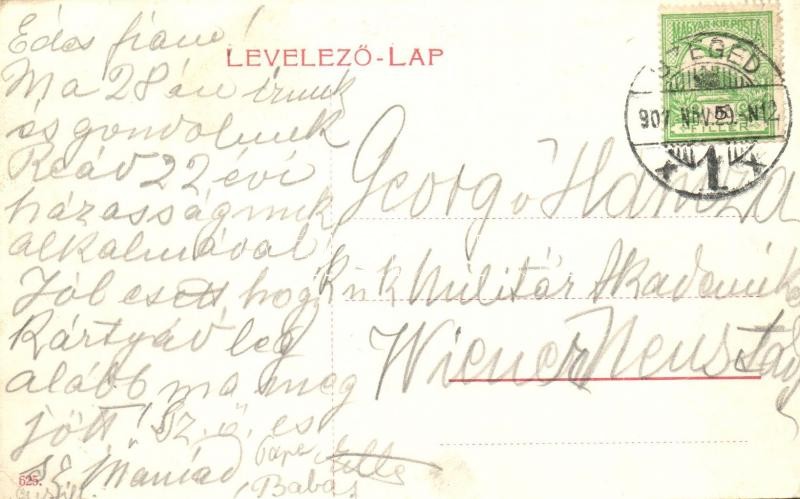 LEVELEZŐ-LAP
MAGYAR KIR. POSTA
SZEGED
907. NOV. 29. N12
5
FILLÉR
1
Édes fiam!
Ma 28 án írunk
és gondolunk
Reád 22 évi
házasságunk
alkalmával
Jól esett hogy
Kártyád leg
alább ma meg
jött! Sz. ü. es
Mamád
Papa
Babas
Georg v Hamza
k u k Militär Akademiker
Wiener Neustadt
525.